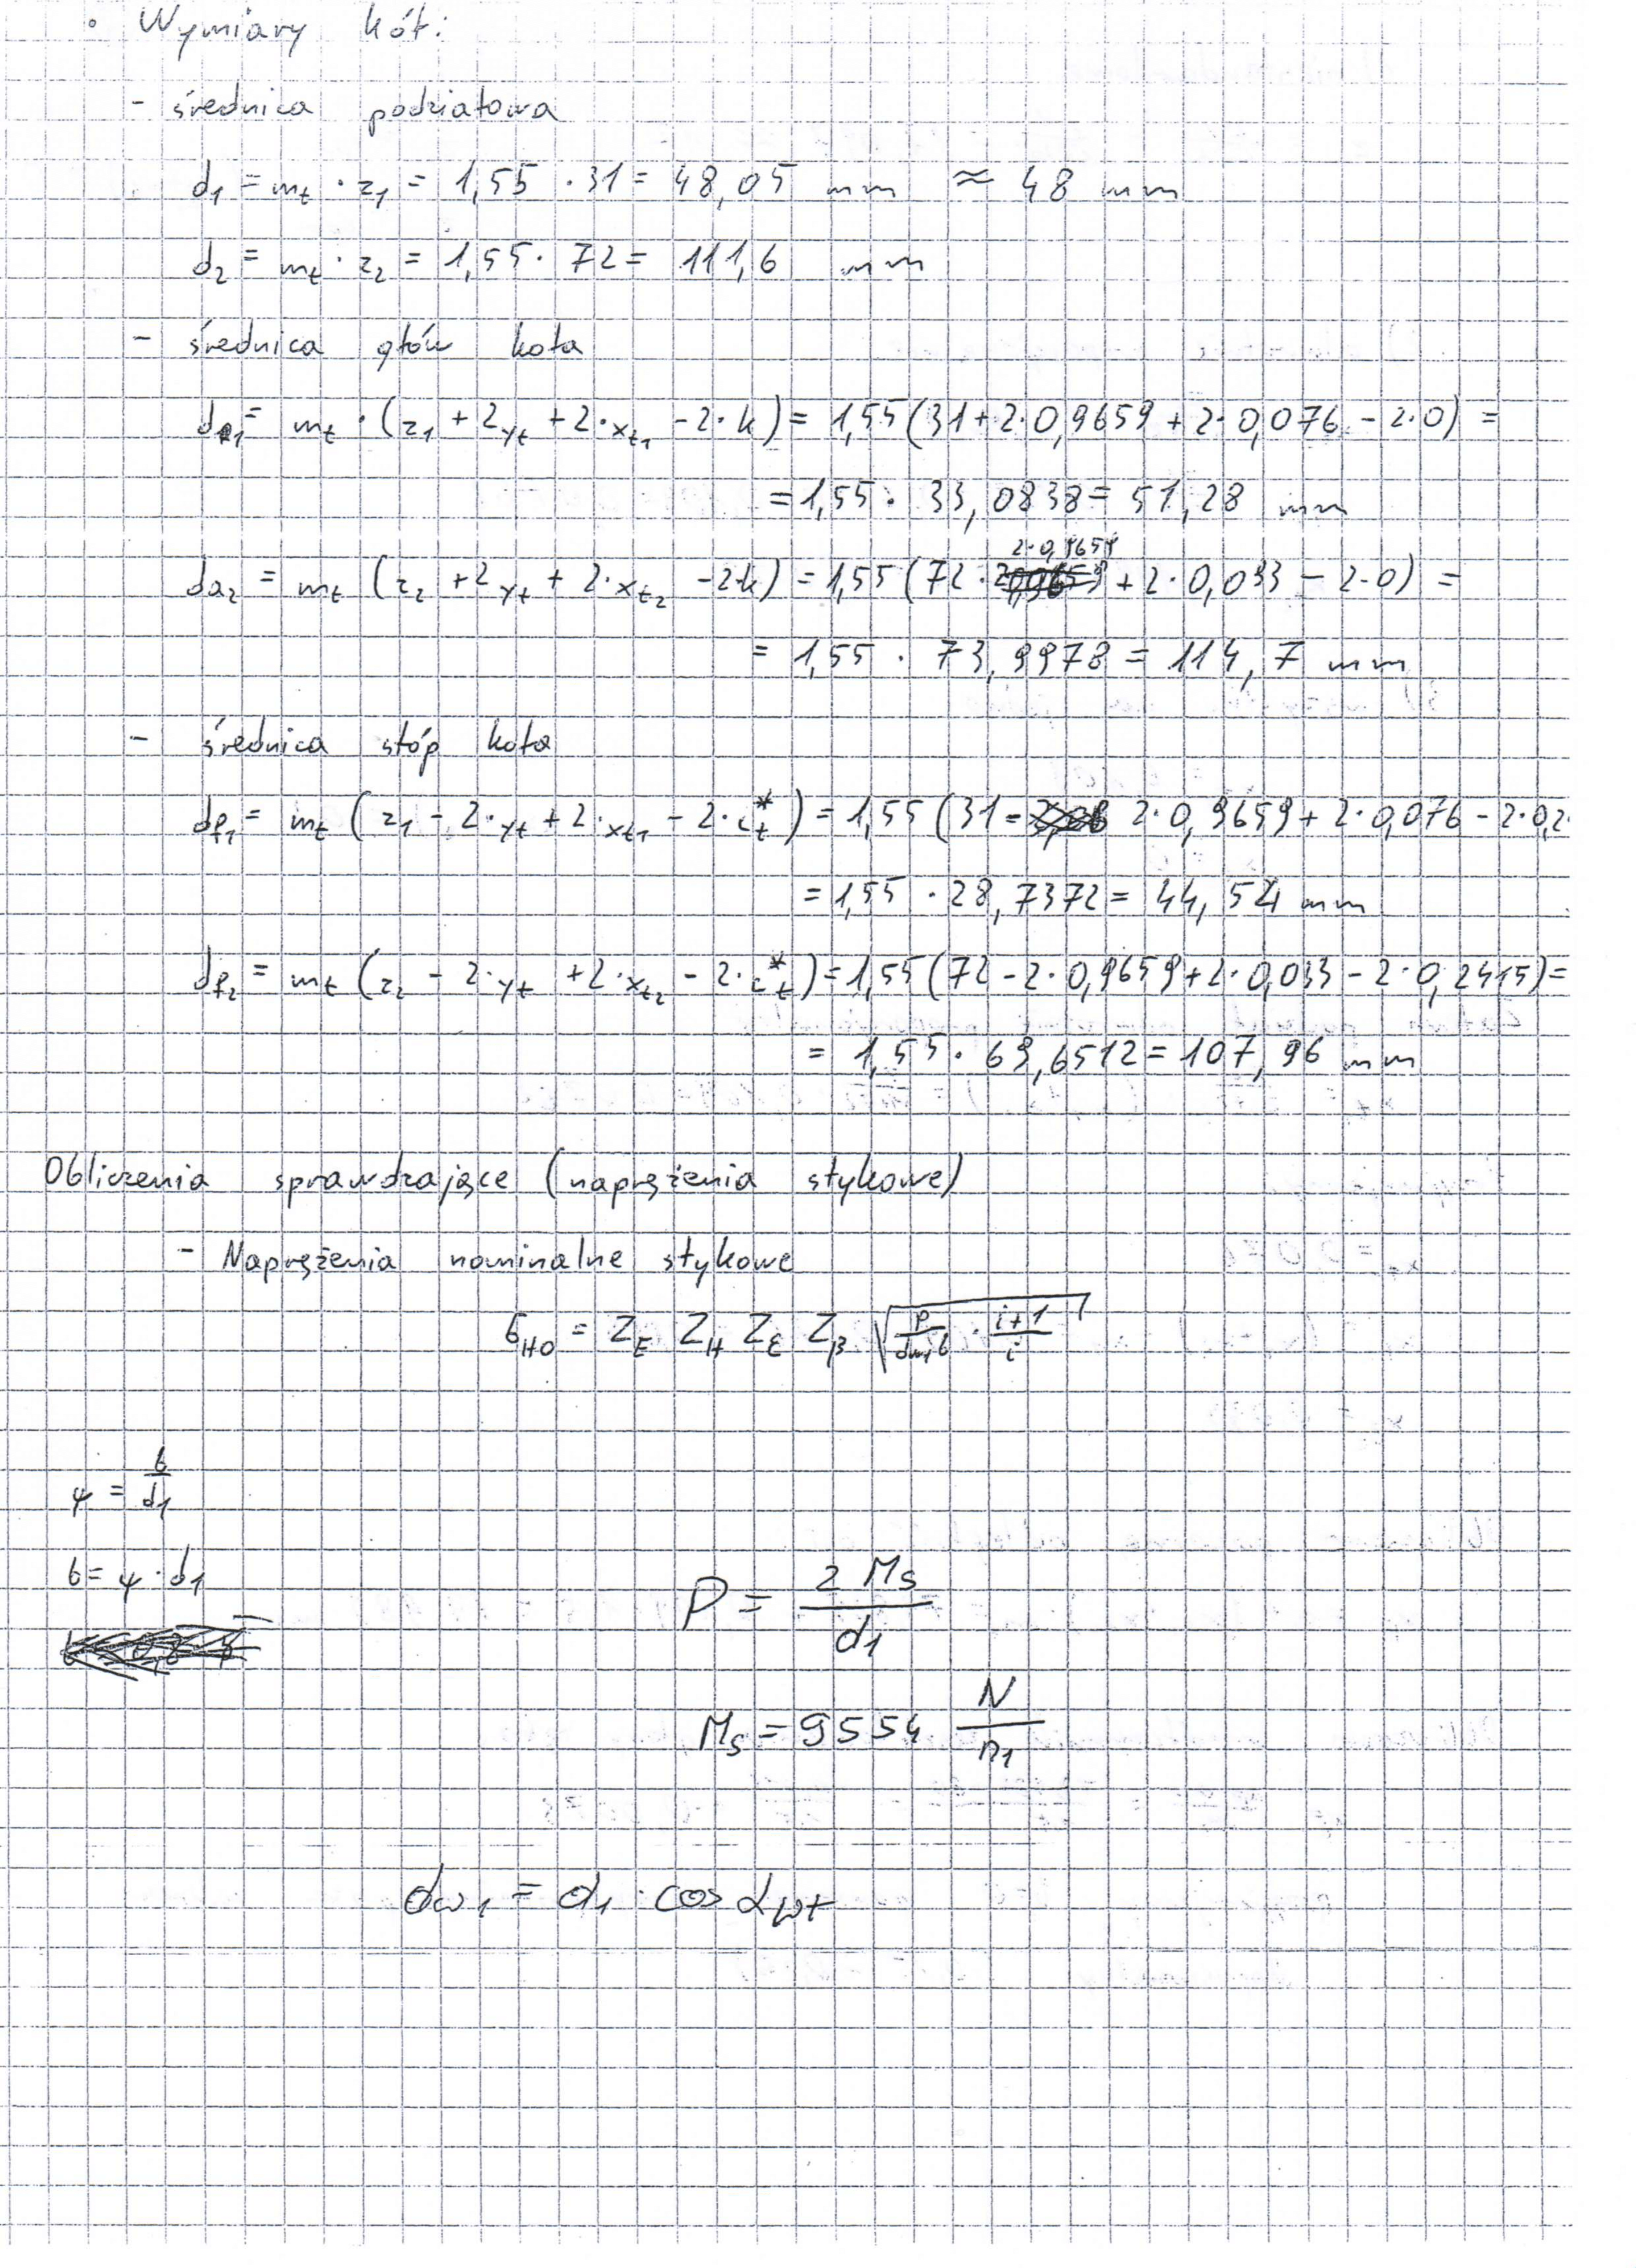 • Wymiary kół:
- średnica podziałowa
d₁ = mₜ · z₁ = 1,55 · 31 = 48,05 mm ≈ 48 mm
d₂ = mₜ · z₂ = 1,55 · 72 = 111,6 mm
- średnica głów koła
da₁ = mₜ · (z₁ + 2yₜ + 2·xₜ₁ - 2·k) = 1,55(31 + 2·0,9659 + 2·0,076 - 2·0) =
= 1,55 · 33,0838 = 51,28 mm
2·0,9659
da₂ = mₜ (z₂ + 2yₜ + 2·xₜ₂ - 2k) = 1,55 (72 · + 2·0,033 - 2·0) =
= 1,55 · 73,9978 = 114,7 mm
- średnica stóp koła
df₁ = mₜ (z₁ - 2·yₜ + 2·xₜ₁ - 2·cₜ*) = 1,55 (31 - 2·0,9659 + 2·0,076 - 2·0,2
= 1,55 · 28,7372 = 44,54 mm
df₂ = mₜ (z₂ - 2·yₜ + 2·xₜ₂ - 2·cₜ*) = 1,55 (72 - 2·0,9659 + 2·0,033 - 2·0,2415) =
= 1,55 · 69,6512 = 107,96 mm
Obliczenia sprawdzające (naprężenia stykowe)
- Naprężenia nominalne stykowe
σ_HO = Z_E Z_H Z_ε Z_β √(P/(dw₁b) · (i+1)/i)
ψ = b/d₁
b = ψ · d₁
P = 2 Ms / d₁
Ms = 9554 N/n₁
dω₁ = d₁ · cos αwt